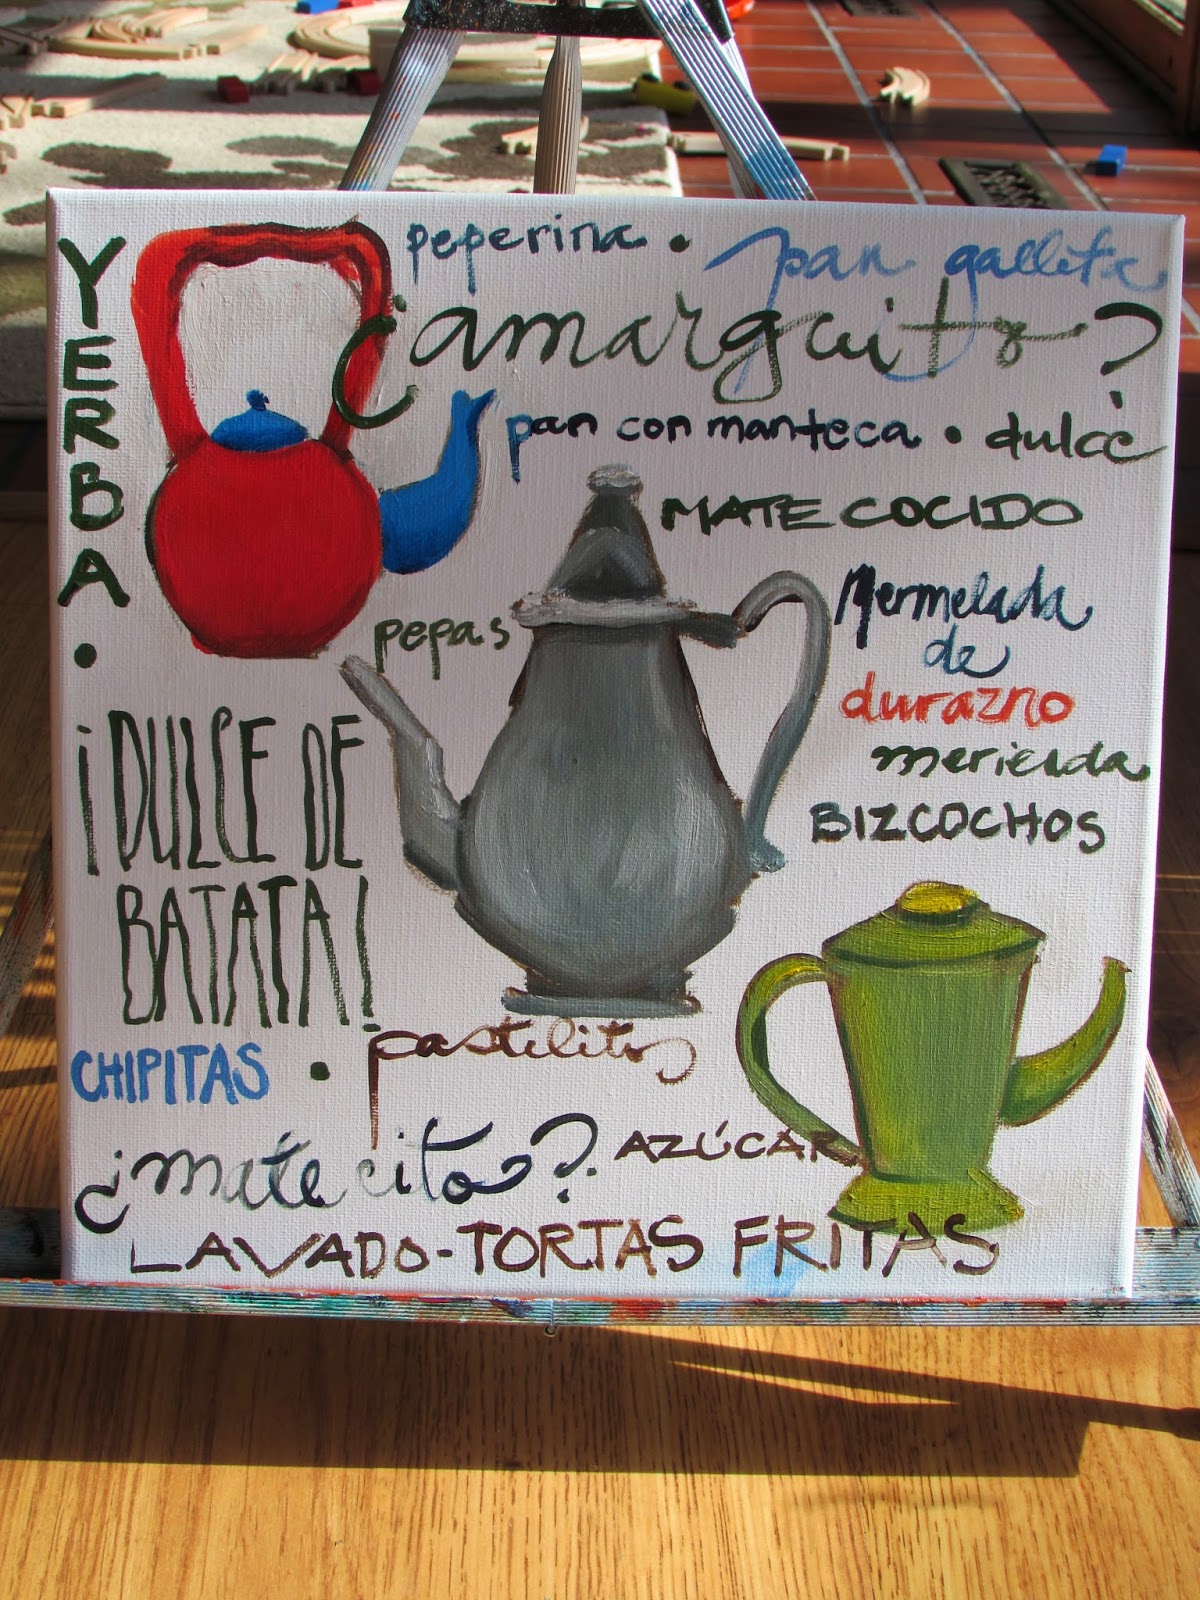 YERBA •
peperina •
pan galleta
¿amarguito?
pan con manteca • dulce
MATE COCIDO
pepas
Mermelada
de
durazno
merienda
BIZCOCHOS
¡DULCE DE
BATATA!
CHIPITAS •
pastelitos
¿matecito?
AZÚCAR
LAVADO-TORTAS FRITAS